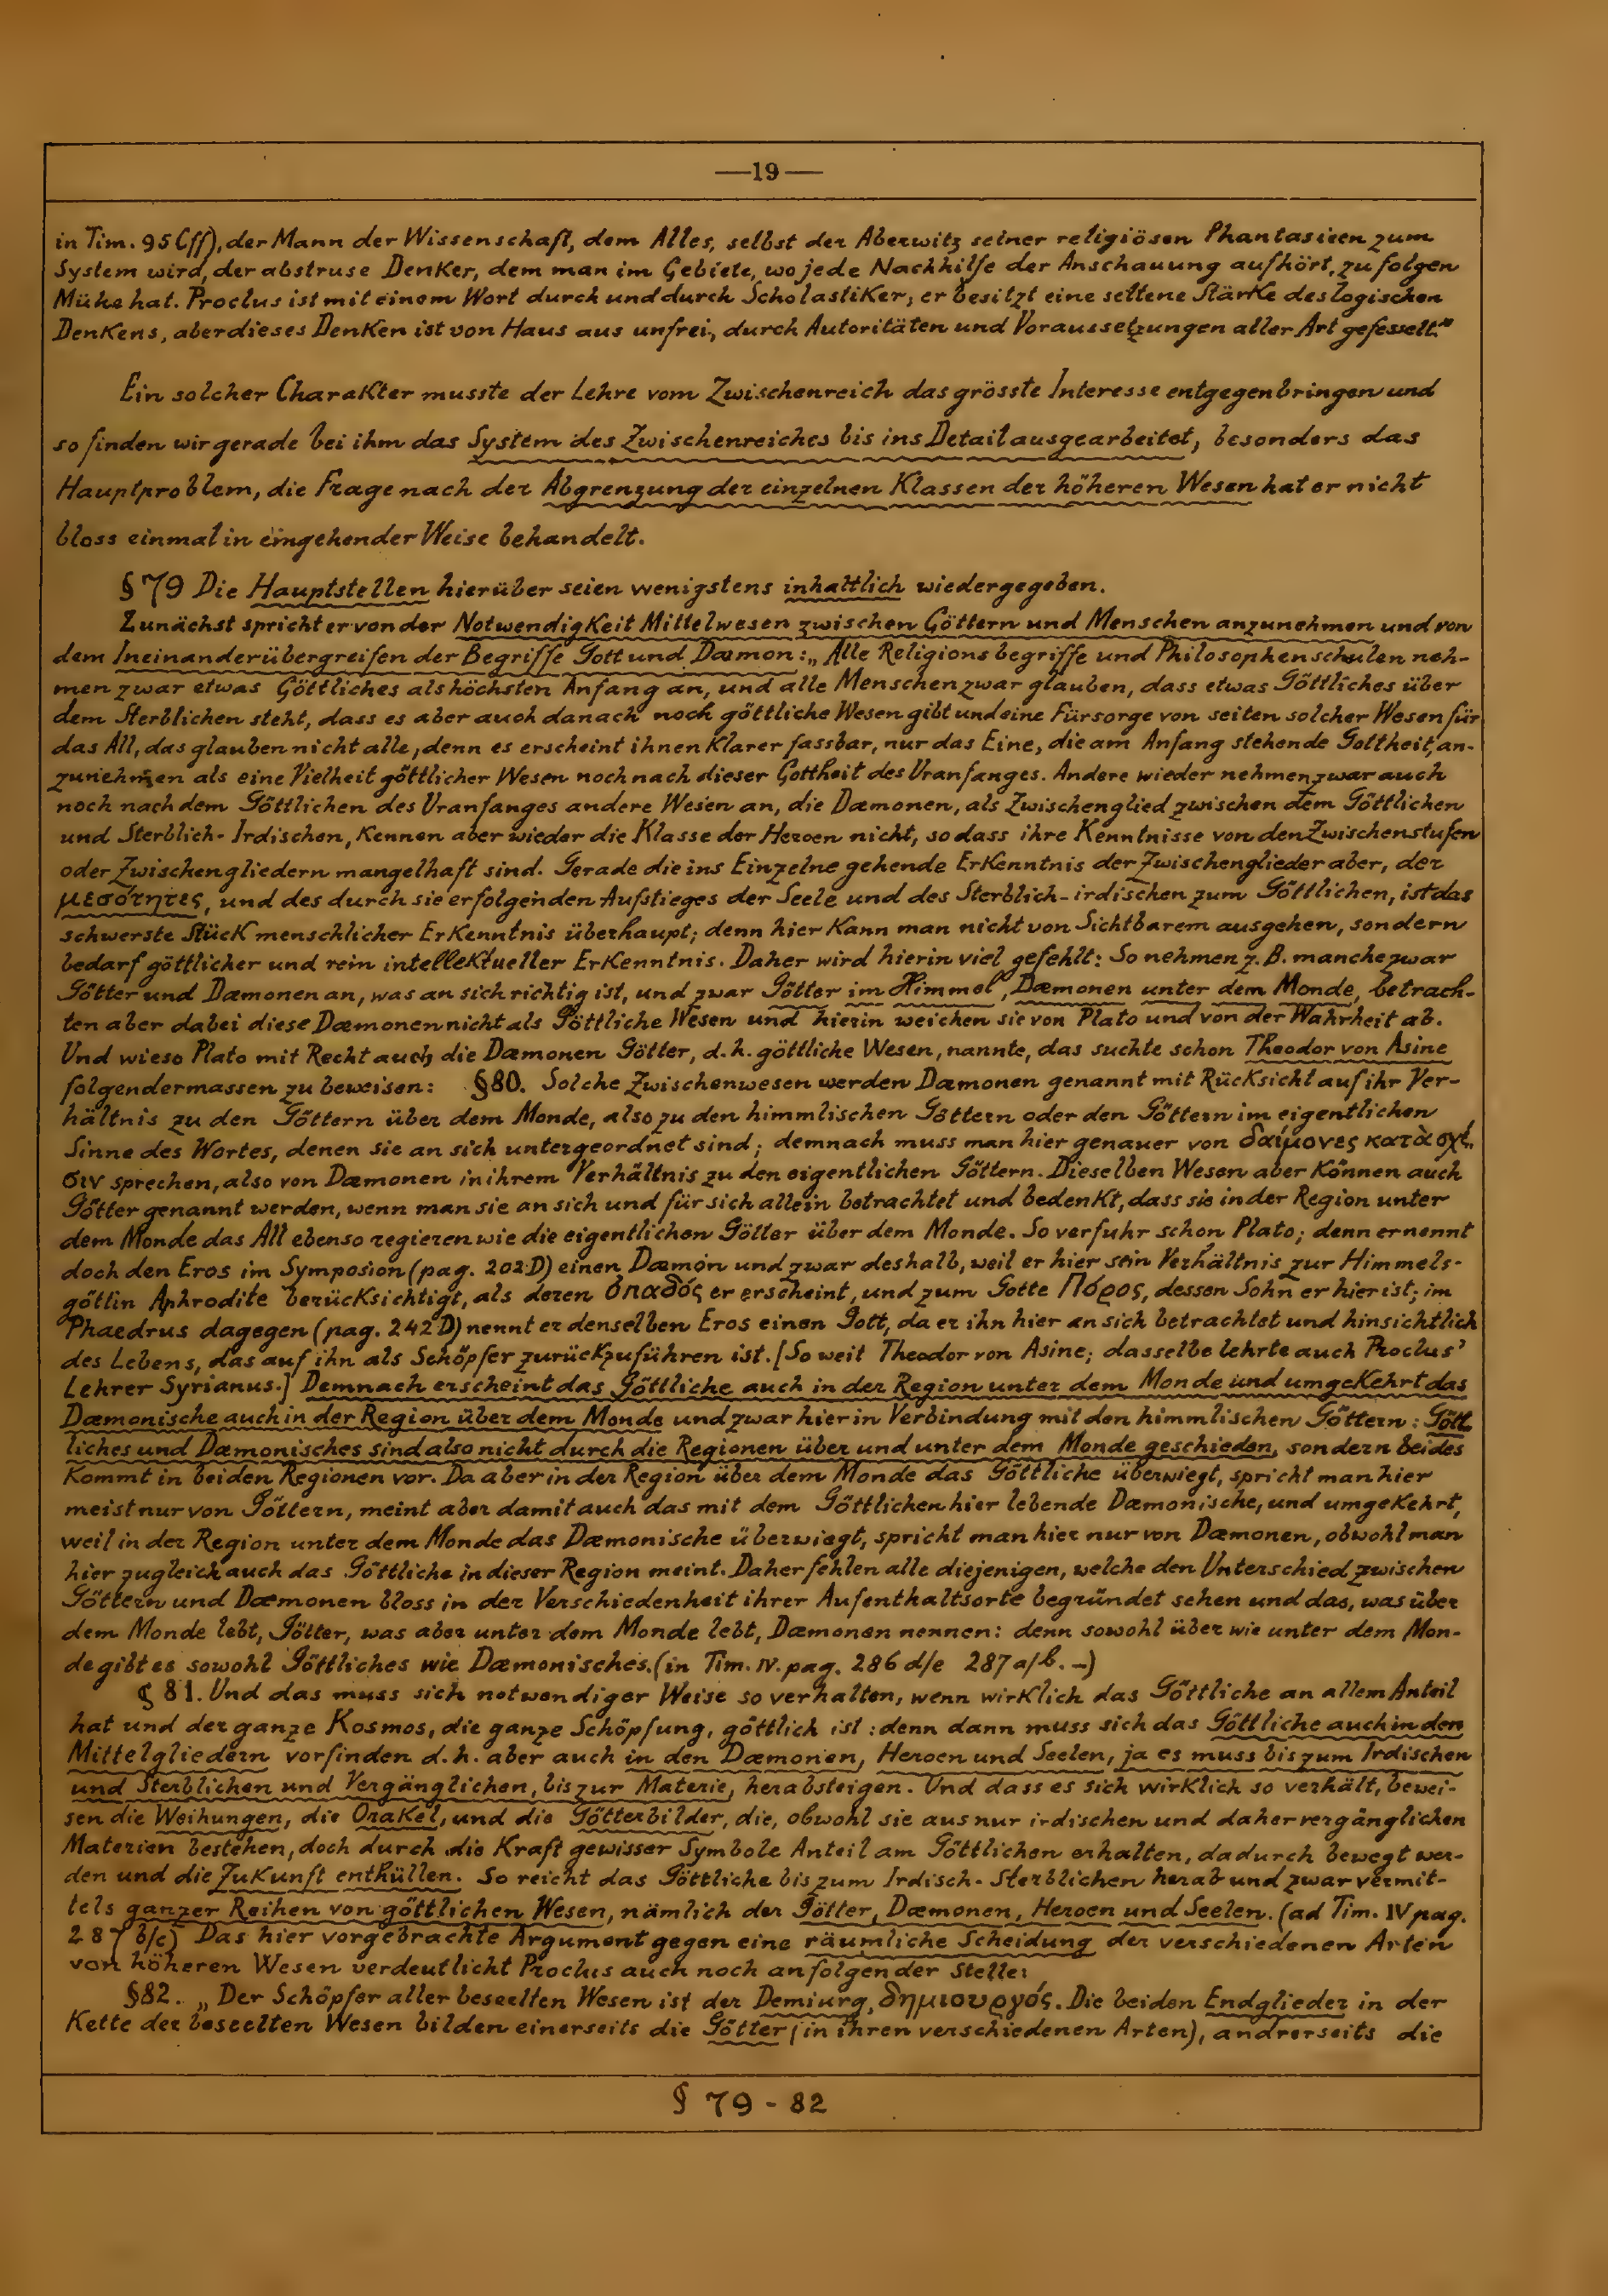 —19—
in Tim. 95 Cff), der Mann der Wissenschaft, dem Alles, selbst der Aberwitz seiner religiösen Phantasieen zum
System wird, der abstruse Denker, dem man im Gebiete, wo jede Nachhilfe der Anschauung aufhört, zu folgen
Mühe hat. Proclus ist mit einem Wort durch und durch Scholastiker; er besitzt eine seltene Stärke des logischen
Denkens, aber dieses Denken ist von Haus aus unfrei, durch Autoritäten und Voraussetzungen aller Art gefesselt."
Ein solcher Charakter musste der Lehre vom Zwischenreich das grösste Interesse entgegenbringen und
so finden wir gerade bei ihm das System des Zwischenreiches bis ins Detail ausgearbeitet, besonders das
Hauptproblem, die Frage nach der Abgrenzung der einzelnen Klassen der höheren Wesen hat er nicht
bloss einmal in eingehender Weise behandelt.
§ 79 Die Hauptstellen hierüber seien wenigstens inhaltlich wiedergegeben.
Zunächst spricht er von der Notwendigkeit Mittelwesen zwischen Göttern und Menschen anzunehmen und von
dem Ineinanderübergreifen der Begriffe Gott und Dæmon: „Alle Religionsbegriffe und Philosophenschulen neh-
men zwar etwas Göttliches als höchsten Anfang an, und alle Menschen zwar glauben, dass etwas Göttliches über
dem Sterblichen steht, dass es aber auch danach noch göttliche Wesen gibt und eine Fürsorge von seiten solcher Wesen für
das All, das glauben nicht alle, denn es erscheint ihnen klarer fassbar, nur das Eine, die am Anfang stehende Gottheit, an-
zunehmen als eine Vielheit göttlicher Wesen noch nach dieser Gottheit des Uranfanges. Andere wieder nehmen zwar auch
noch nach dem Göttlichen des Uranfanges andere Wesen an, die Dæmonen, als Zwischenglied zwischen dem Göttlichen
und Sterblich-Irdischen, kennen aber wieder die Klasse der Heroen nicht, so dass ihre Kenntnisse von den Zwischenstufen
oder Zwischengliedern mangelhaft sind. Gerade die ins Einzelne gehende Erkenntnis der Zwischenglieder aber, der
μεσότητες, und des durch sie erfolgenden Aufstieges der Seele und des Sterblich-irdischen zum Göttlichen, ist das
schwerste Stück menschlicher Erkenntnis überhaupt; denn hier kann man nicht von Sichtbarem ausgehen, sondern
bedarf göttlicher und rein intellektueller Erkenntnis. Daher wird hierin viel gefehlt: So nehmen z. B. manche zwar
Götter und Dæmonen an, was an sich richtig ist, und zwar Götter im Himmel, Dæmonen unter dem Monde, betrach-
ten aber dabei diese Dæmonen nicht als Göttliche Wesen und hierin weichen sie von Plato und von der Wahrheit ab.
Und wieso Plato mit Recht auch die Dæmonen Götter, d. h. göttliche Wesen, nannte, das suchte schon Theodor von Asine
folgendermassen zu beweisen: §80. Solche Zwischenwesen werden Dæmonen genannt mit Rücksicht auf ihr Ver-
hältnis zu den Göttern über dem Monde, also zu den himmlischen Göttern oder den Göttern im eigentlichen
Sinne des Wortes, denen sie an sich untergeordnet sind; demnach muss man hier genauer von δαίμονες κατὰ σχέ-
σιν sprechen, also von Dæmonen in ihrem Verhältnis zu den eigentlichen Göttern. Dieselben Wesen aber können auch
Götter genannt werden, wenn man sie an sich und für sich allein betrachtet und bedenkt, dass sie in der Region unter
dem Monde das All ebenso regieren wie die eigentlichen Götter über dem Monde. So verfuhr schon Plato; denn er nennt
doch den Eros im Symposion (pag. 202 D) einen Dæmon und zwar deshalb, weil er hier sein Verhältnis zur Himmels-
göttin Aphrodite berücksichtigt, als deren ὀπαδός er erscheint, und zum Gotte Πόρος, dessen Sohn er hier ist; im
Phaedrus dagegen (pag. 242 D) nennt er denselben Eros einen Gott, da er ihn hier an sich betrachtet und hinsichtlich
des Lebens, das auf ihn als Schöpfer zurückzuführen ist. [So weit Theodor von Asine; dasselbe lehrte auch Proclus'
Lehrer Syrianus.] Demnach erscheint das Göttliche auch in der Region unter dem Monde und umgekehrt das
Dæmonische auch in der Region über dem Monde und zwar hier in Verbindung mit den himmlischen Göttern: Gött-
liches und Dæmonisches sind also nicht durch die Regionen über und unter dem Monde geschieden, sondern beides
kommt in beiden Regionen vor. Da aber in der Region über dem Monde das Göttliche überwiegt, spricht man hier
meist nur von Göttern, meint aber damit auch das mit dem Göttlichen hier lebende Dæmonische, und umgekehrt,
weil in der Region unter dem Monde das Dæmonische überwiegt, spricht man hier nur von Dæmonen, obwohl man
hier zugleich auch das Göttliche in dieser Region meint. Daher fehlen alle diejenigen, welche den Unterschied zwischen
Göttern und Dæmonen bloss in der Verschiedenheit ihrer Aufenthaltsorte begründet sehen und das, was über
dem Monde lebt, Götter, was aber unter dem Monde lebt, Dæmonen nennen: denn sowohl über wie unter dem Mon-
de gibt es sowohl Göttliches wie Dæmonisches. (in Tim. IV. pag. 286 d/e 287 a/b. –)
§ 81. Und das muss sich notwendiger Weise so verhalten, wenn wirklich das Göttliche an allem Anteil
hat und der ganze Kosmos, die ganze Schöpfung, göttlich ist: denn dann muss sich das Göttliche auch in den
Mittelgliedern vorfinden d. h. aber auch in den Dæmonen, Heroen und Seelen, ja es muss bis zum Irdischen
und Sterblichen und Vergänglichen, bis zur Materie, herabsteigen. Und dass es sich wirklich so verhält, bewei-
sen die Weihungen, die Orakel, und die Götterbilder, die, obwohl sie aus nur irdischen und daher vergänglichen
Materien bestehen, doch durch die Kraft gewisser Symbole Anteil am Göttlichen erhalten, dadurch bewegt wer-
den und die Zukunft enthüllen. So reicht das Göttliche bis zum Irdisch-Sterblichen herab und zwar vermit-
tels ganzer Reihen von göttlichen Wesen, nämlich der Götter, Dæmonen, Heroen und Seelen. (ad Tim. IV pag.
287 b/c) Das hier vorgebrachte Argument gegen eine räumliche Scheidung der verschiedenen Arten
von höheren Wesen verdeutlicht Proclus auch noch an folgender Stelle:
§82. „Der Schöpfer aller beseelten Wesen ist der Demiurg, δημιουργός. Die beiden Endglieder in der
Kette der beseelten Wesen bilden einerseits die Götter (in ihren verschiedenen Arten), andrerseits die
§ 79 - 82